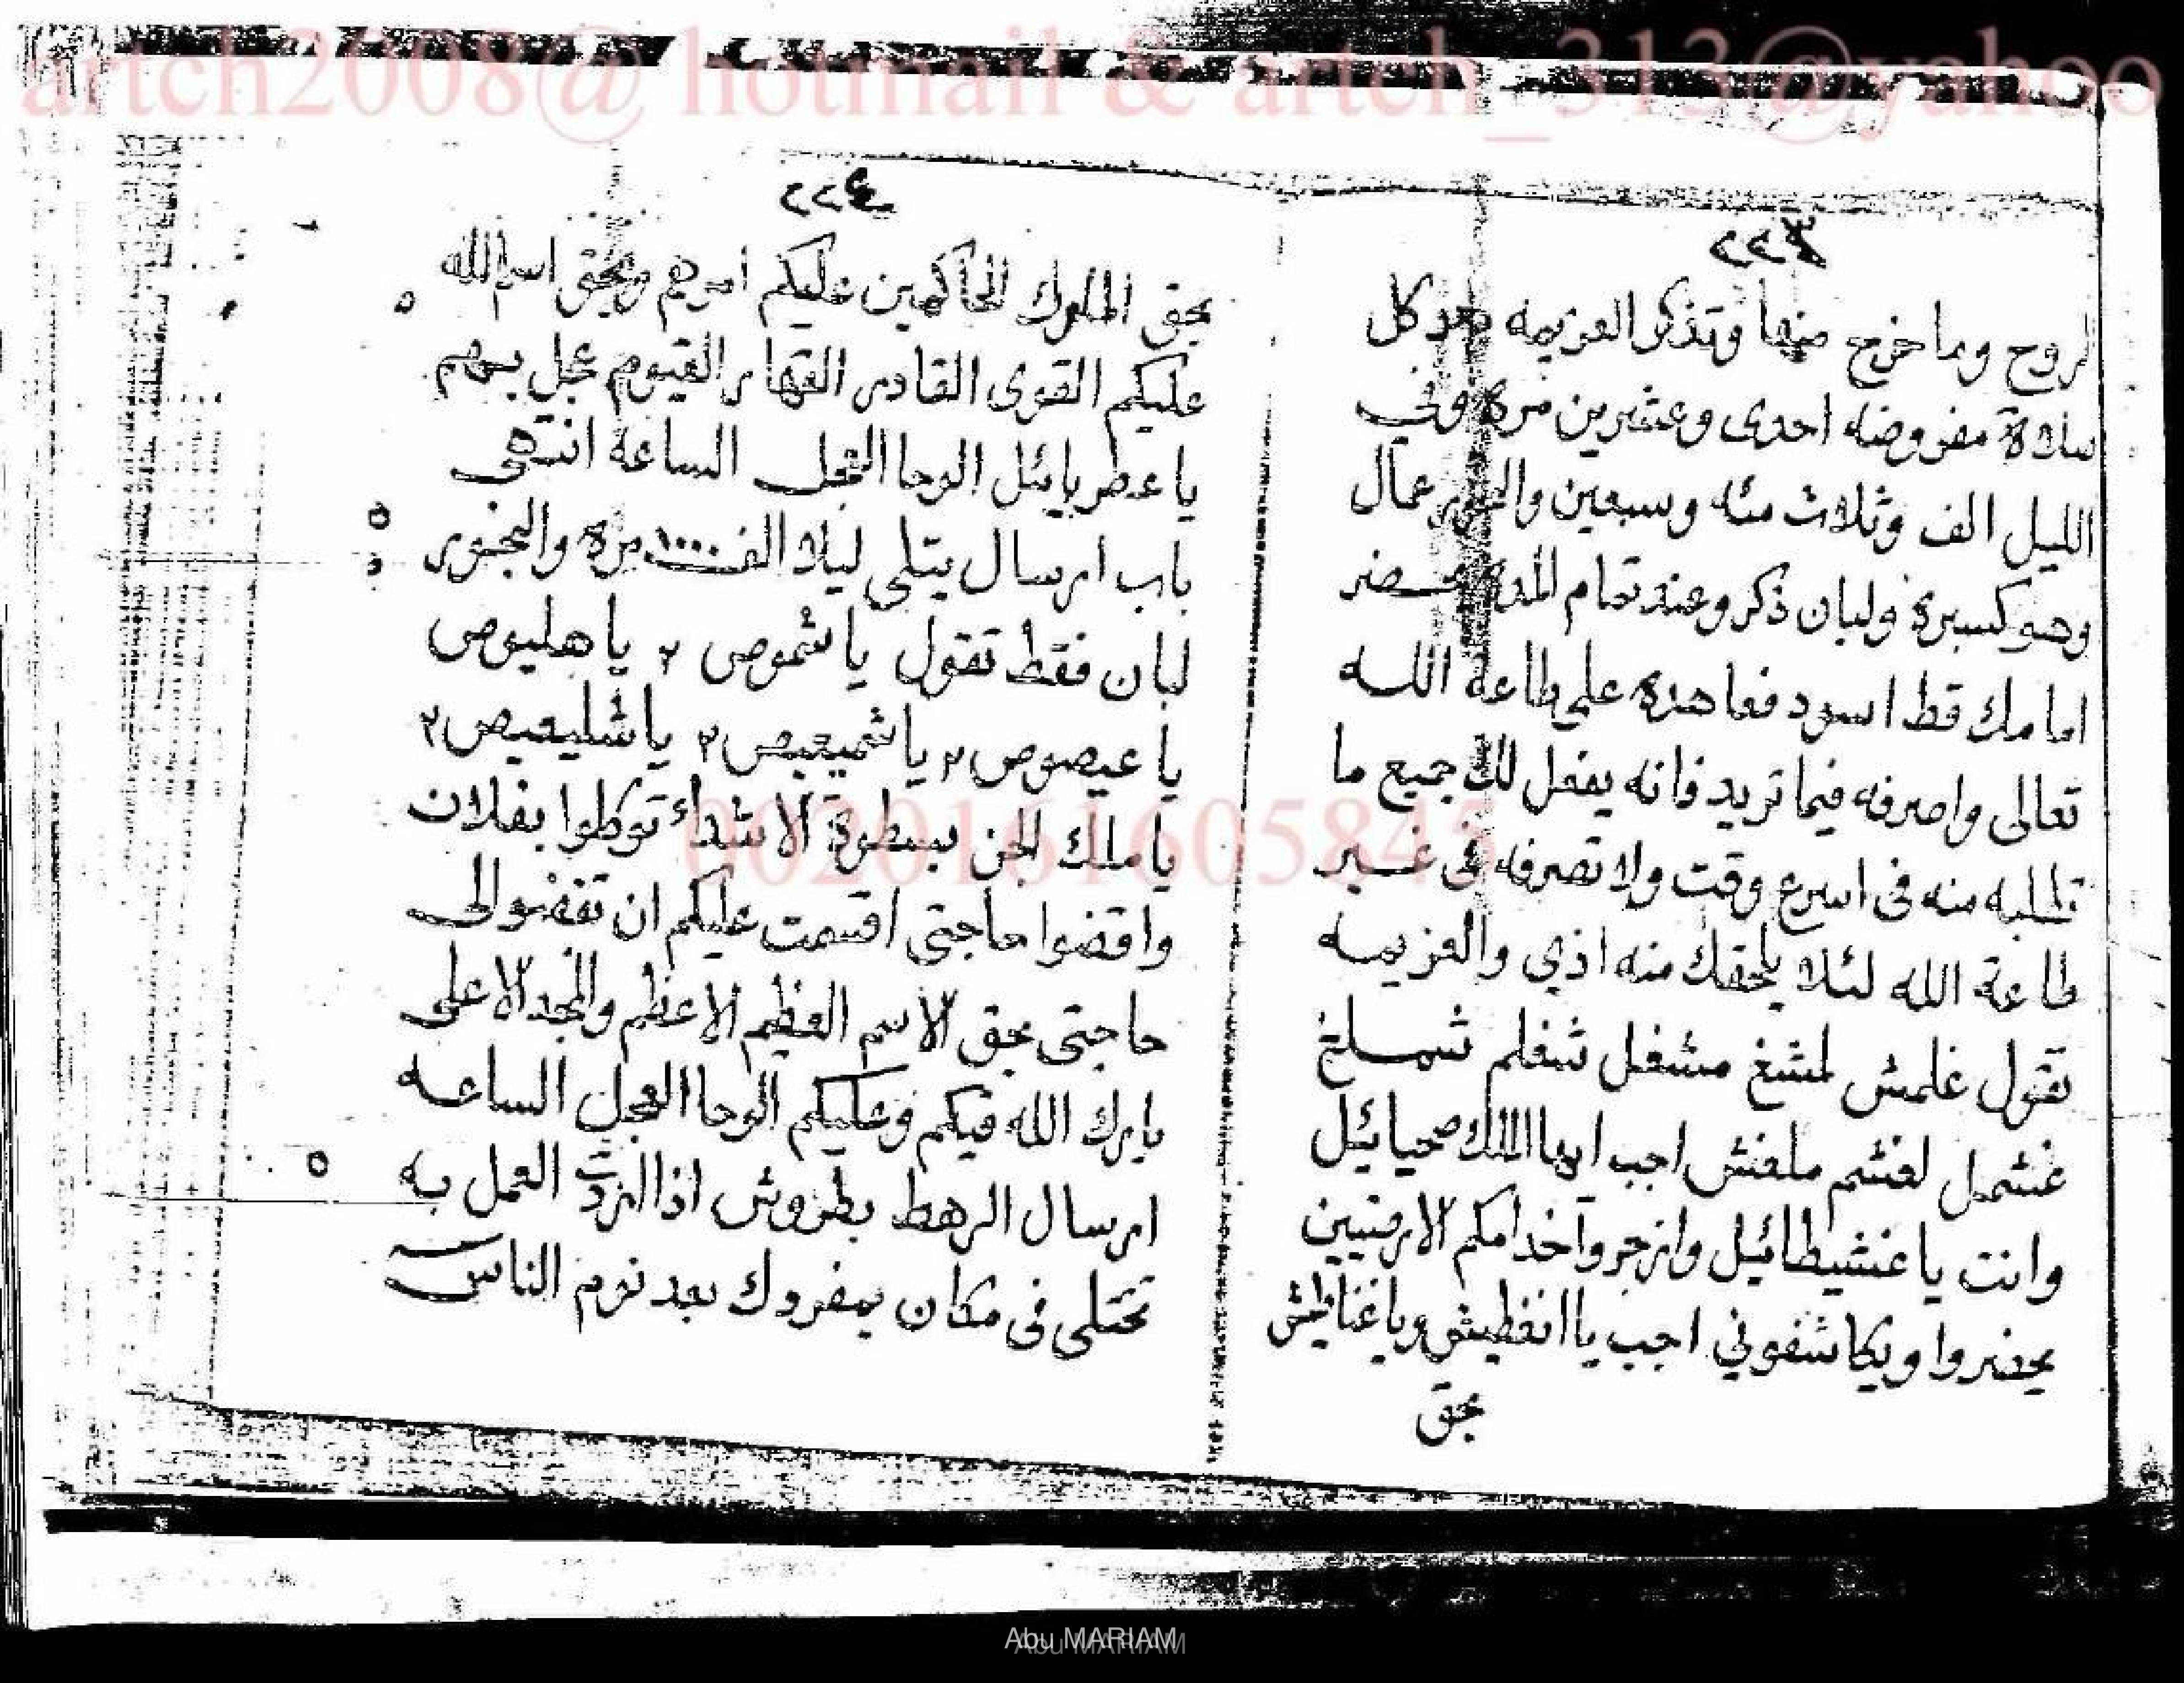 artch2008@ hotmail & artch_313@yahoo
٢٢٣
لروح وما خرج منها وتذكر العزيمه بعد كل
صلاة مفروضه احدى وعشرين مرة وفي
الليل الف وثلاث مئه وسبعين والبخور عمال
وهو كسبرة ولبان ذكر وعند تمام المدة يحضر
امامك قط اسود فعاهده على طاعة الله
تعالى واصرفه فيما تريد فانه يفعل لك جميع ما
تطلبه منه في اسرع وقت ولا تصرفه في غير
طاعة الله لئلا يلحقك منه اذي والعزيمه
تقول غلمش لمشغ مشغل شغلم شملغ
غشمل لغشم ملغش اجب ايها الملك صحيائيل
وانت يا غشيطائيل وازجروا خدامكم الارضيين
يحضروا ويكاشفوني اجب يا انغطيش ويا غناطيش
بحق
٢٢٤
بحق الملوك الحاكمين عليكم امرهم وبحق اسم الله
عليكم القوى القادر القهار القيوم عجل بهم
يا عطريائيل الوحا العجل الساعة انتهى
باب ارسال يتلى ليلا الف ١٠٠٠ مرة والبخور
لبان فقط تقول يا شموص ٢ يا هليوص
يا عيصوص ٢ يا شميعيص ٢ يا شليعيص ٢
يا ملك الجن بسطوة الاشداء توكلوا بفلان
واقضوا حاجتى اقسمت عليكم ان تقضوا لى
حاجتى بحق الاسم العظيم الاعظم والمجد الاعلى
بارك الله فيكم وعليكم الوحا العجل الساعه
ارسال الرهط بطروش اذا اردت العمل به
تختلى فى مكان بمفروك بعد نوم الناس
0020161605845
Abu MARIAM